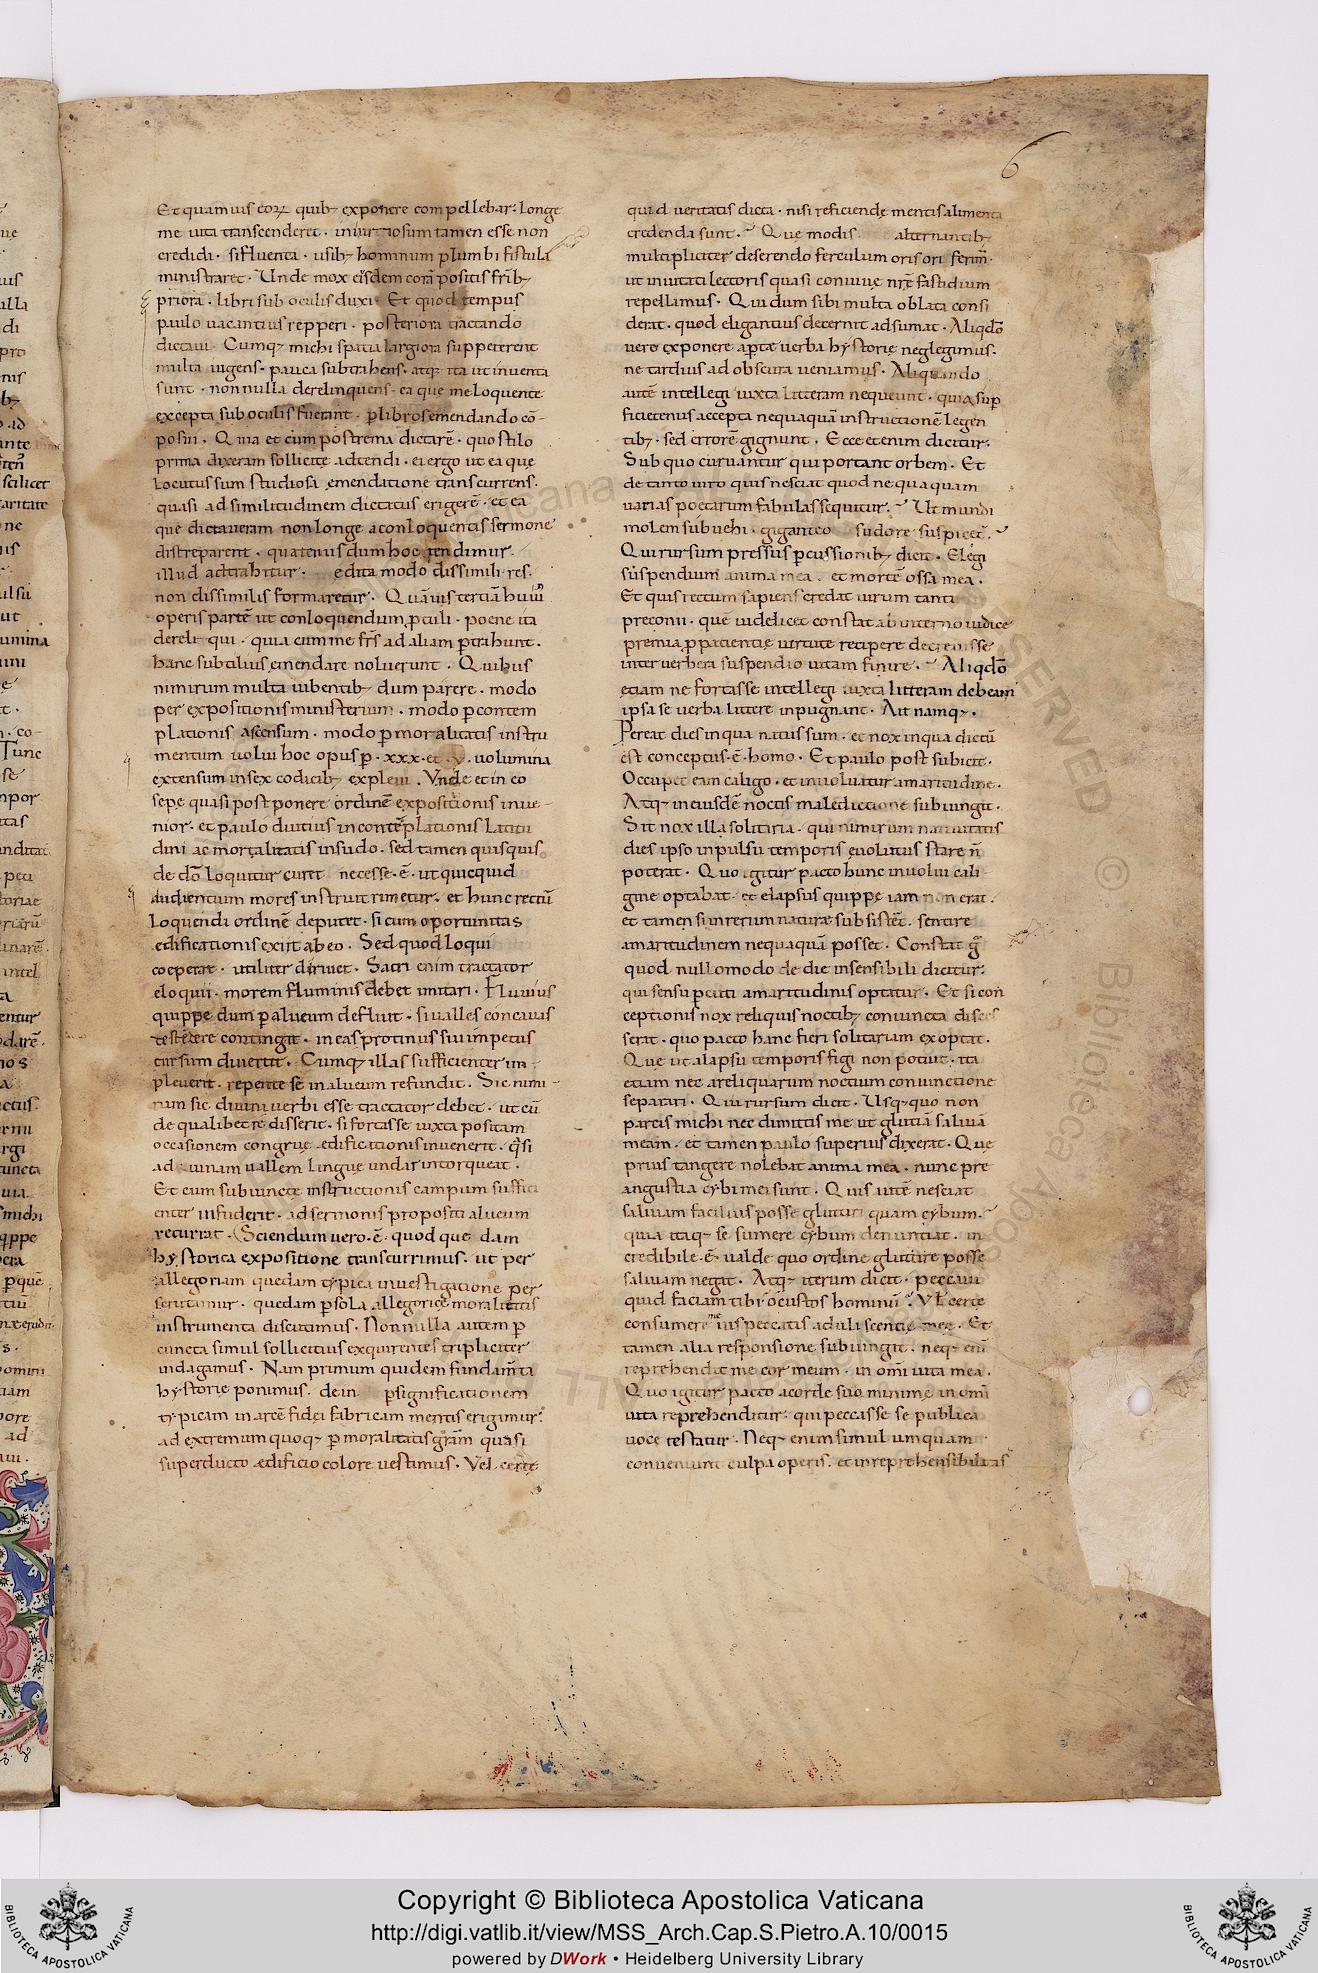 6
Et quamuis eoꝝ quib; exponere compellebar · Longe
me uita transcenderet · iniuriosum tamen esse non
credidi · si fluenta · usib; hominum plumbi fistula
ministraret · Unde mox eisdem corā positis frīb;
priora · libri sub oculis duxi · Et quod tempus
paulo uacantius repperi · posteriora tractando
dictaui · Cumq; michi spatia largiora suppeterent
multa augens · pauca subtrahens · atq; ita ut inuenta
sunt · nonnulla derelinquens · ea que me loquente
excepta sub oculis fuerant · p libros emendando cō-
posui · Quia et cum postrema dictarē · quo stilo
prima dixeram sollicite adtendi · ei ergo ut ea quę
Locutus sum studiosa emendatione transcurrens ·
quasi ad similitudinem dictatus erigerē · et ea
que dictaueram non longe a conloquentis sermone
discreparent · quatenus dum hoc tendimur ·
illud adtrahitur · edita modo dissimili res ·
non dissimilis formaretur · Quāuis tertiam huiꝰ
operis partē ut conloquendum ptuli · poene ita
dereliqui · quia cum me frs ad aliam ptrahunt ·
hanc subtilius emendare noluerunt · Quibus
nimirum multa iubentib; dum parere · modo
per expositionis ministerium · modo p contem
plationis ascensum · modo p moralitatis instru
mentum uolui hoc opus p · xxx · et · v · uolumina
extensum in sex codicib; expleui · Unde et in eo
sepe quasi postponere ordinē expositionis inue-
nior · et paulo diutius in contēplationis Latitu
dini ac moralitatis insudo · sed tamen quisquis
de dō Loquitur curet necesse · ē · ut quicquid
audientum mores instruit rimetur · et hunc rectū
Loquendi ordinē deputet · si cum oportunitas
edificationis exiit ab eo · Sed quod loqui
coeperat · utiliter diriuet · Sacri enim tractator
eloquii · morem fluminis debet imitari · Fluuius
quippe dum p alueum defluit · si ualles concauas
contingit · in eas protinus sui impetus
cursum diuertit · Cumq; illas sufficienter im
pleuerit · repente se in alueum refundit · Sic nimi-
rum sic diuini uerbi esse tractator debet · ut cū
de qualibet re disserit · si fortasse iuxta positam
occasionem congruę edificationis inuenerit · qsi
ad uicinam uallem Linguę undas intorqueat ·
Et cum subiunctę instructionis campum suffici
enter infuderit · ad sermonis propositi alueum
recurrat · Sciendum uero · ē · quod que dam
hystorica expositione transcurrimus · ut per
allegoriam quedam typica inuestigatione per
scrutamur · quedam p sola allegoricę moralitatis
instrumenta discutimus · Nonnulla autem p
cuncta simul sollicitius exquirentes tripliciter
indagamus · Nam primum quidem fundamta
hystorię ponimus · dein p significationem
typicam in arcē fidei fabricam mentis erigimur ·
ad extremum quoq; p moralitatis gram quasi
superducto edificio colore uestimus · Vel certe
quid ueritatis dicta · nisi reficiendę mentis alimenta
credenda sunt · Quę modis alternantib;
multipliciter deserendo ferculum oris ori ferim̄ ·
ut inuitati lectoris quasi conuiuę nrē fastidium
repellimus · Qui dum sibi multa oblata consi
derat · quod eligantius decernit adsumat · Aliqdo
uero exponere aptæ uerba hystorię neglegimus ·
ne tardius ad obscura ueniamus · Aliquando
autē intellegi iuxta Litteram nequeunt · quia sup
ficietenus accepta nequaquā instructionē Legen
tib; · sed errorē gignunt · Ecce etenim dicitur ·
Sub quo curuantur qui portant orbem · Et
de tanto uiro quis nesciat quod ne quaquam
uarias poetarum fabulas sequitur · Ut mundi
molem subuehi · giganteo sudore suspicet ·
Qui rursum pressus pcussionib; dicit · Elegi
suspendium anima mea · et mortē ossa mea ·
Et quis rectum sapiens credat uirum tanti
preconii · quē uidelicet constat ab interno iudice
premia p patientię uirtute recipere decreuisse
inter uerbera suspendio uitam finire · Aliqdo
etiam ne fortasse intellegi iuxta litteram debeant
ipsa se uerba littere inpugnant · Ait namq; ·
Pereat dies in qua natus sum · et nox in qua dictū
est conceptus · ē · homo · Et paulo post subicit ·
Occupet eam caligo · et inuoluatur amaritudine ·
Atq; in eiusdē noctis maledictione subiungit ·
Sit nox illa solitaria · qui nimirum natiuitatis
dies ipso inpulsu temporis euolutus stare ñ
poterat · Quo igitur pacto hunc inuolui cali
gine optabat · et elapsus quippe iam non erat ·
et tamen si in rerum naturæ subsistēt · sentire
amaritudinem nequaquā posset · Constat g
quod nullomodo de die insensibili dicitur ·
qui sensu pcuti amaritudinis optatur · Et si con
ceptionis nox reliquis noctib; coniuncta disces
serat · quo pacto hanc fieri solitariam exoptat ·
Quę ut a lapsu temporis figi non potuit · ita
etiam nec a reliquarum noctium coniunctione
separari · Qui rursum dicit · Usq; quo non
parcis michi nec dimittis me ut glutiā saliuā
meam · et tamen paulo superius dixerat · Que
prius tangere nolebat anima mea · nunc pre
angustia cybi mei sunt · Quis autē nesciat
saliuam facilius posse glutiri quam cybum ·
quia itaq; se sumere cybum denuntiat · in
credibile · ē · ualde quo ordine glutiare posse
saliuam negat · Atq; iterum dicit · peccaui
quid faciam tibi o custos hominū · Vt certe
consumere me uis peccatis aduliscentię meę · Et
tamen alia responsione subiungit · neq; enī
reprehendit me cor meum · in omī uita mea ·
Quo igitur pacto a corde suo minime in omī
uita reprehenditur · qui peccasse se publica
uoce testatur · Neq; enim simul umquam
conueniunt culpa operis · et inreprehensibilitas
Copyright © Biblioteca Apostolica Vaticana
http://digi.vatlib.it/view/MSS_Arch.Cap.S.Pietro.A.10/0015
powered by DWork • Heidelberg University Library
BIBLIOTECA APOSTOLICA VATICANA
BIBLIOTECA APOSTOLICA VATICANA